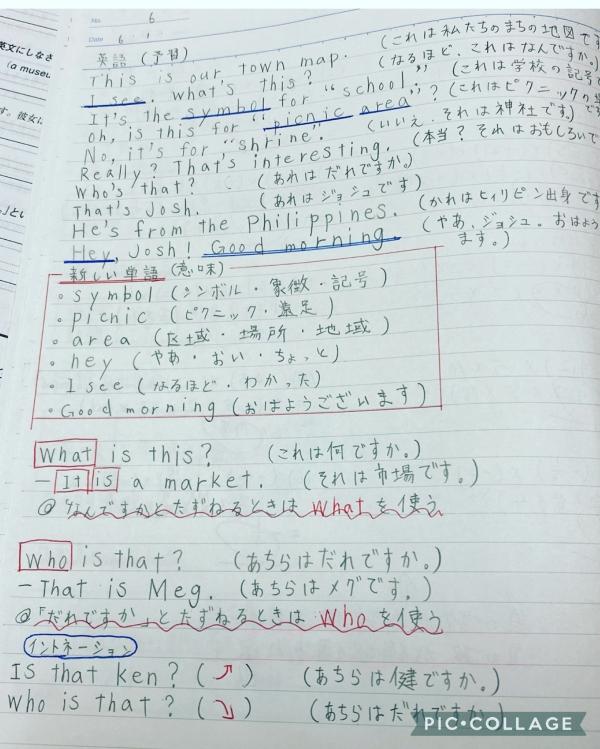 No. 6
Date 6 1
英文にしなさ
(a museu
す。彼女に
英語 (予習)
This is our town map. (これは私たちのまちの地図で
I see. What's this? (なるほど、これはなんですか。)
It's the symbol for "school." (これは学校の記号で
Oh, is this for "picnic area"? (これはピクニックの
No, it's for "shrine." (いいえ、それは神社です。)
Really? That's interesting. (本当？それはおもしろいで
Who's that? (あれはだれですか。)
That's Josh. (あれはジョシュです)
He's from the Philippines. (かれはヒィリピン出身です
Hey, Josh! Good morning. (やあ、ジョシュ。おはよう
ます。)
新しい単語 (意味)
・symbol (シンボル・象徴・記号)
・picnic (ピクニック・遠足)
・area (区域・場所・地域)
・hey (やあ・おい・ちょっと)
・I see (なるほど・わかった)
・Good morning (おはようございます)
What is this? (これは何ですか。)
— It is a market. (それは市場です。)
@ 「なんですか」とたずねるときは What を使う
Who is that? (あちらはだれですか。)
— That is Meg. (あちらはメグです。)
@「だれですか」とたずねるときは Who を使う
イントネーション
Is that ken? (↗) (あちらは健ですか。)
Who is that? (↘) (あちらはだれですか。)
PIC•COLLAGE